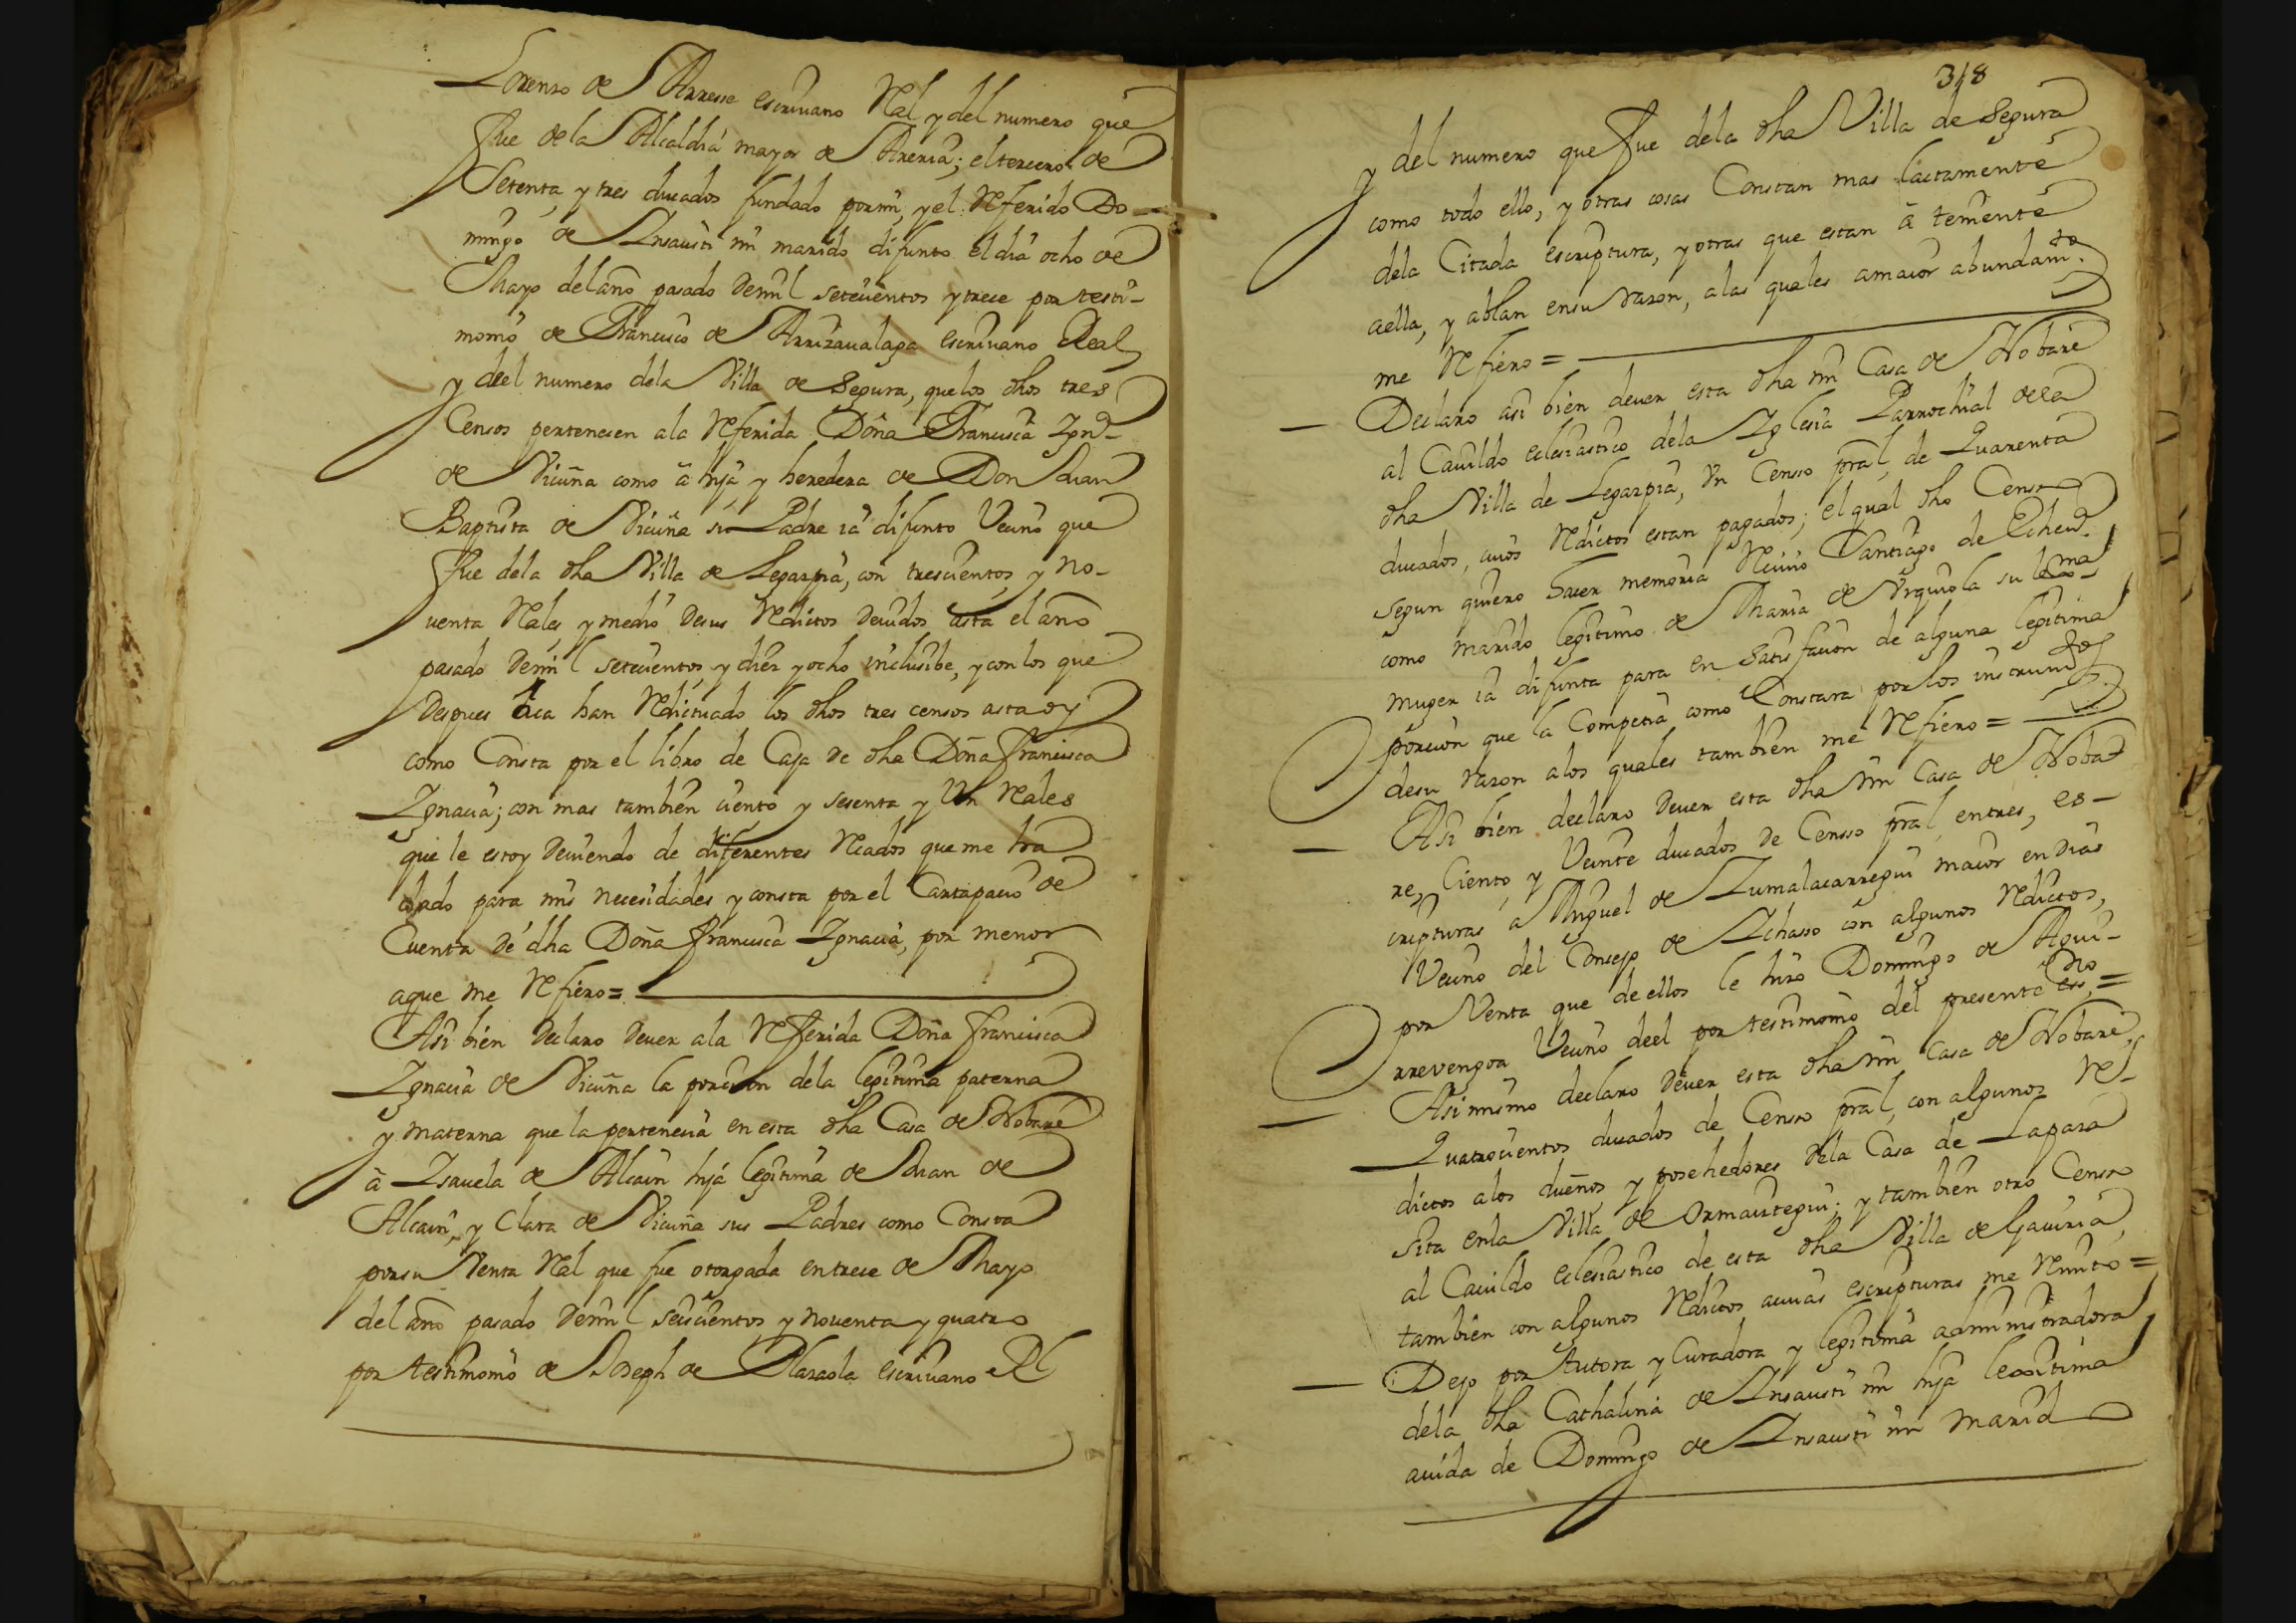 Lorenzo de Arresse escriuano Real y del numero que
fue de la Alcaldia mayor de Areria; el tercero de
Setenta, y tres ducados fundado por mi, y el Referido Do-
mingo de Insausti mi marido difunto el dia ocho de
Mayo del año pasado de mil setecientos y trece por testi-
monio de Francisco de Arrizaualaga escriuano Real
y deel numero dela Villa de Segura, que los dhos tres
Censos pertenecen ala Referida Doña Francisca Ign.ª
de Vicuña como â hija y heredera de Don Juan
Baptista de Vicuña su Padre ia difunto Vecino que
fue dela dha Villa de Legazpia, con trescientos, y no-
uenta Reales y medio desus Reditos deuidos asta el año
pasado de mil setecientos, y diez y ocho inclusibe, y con los que
despues aca han Redituado los dhos tres censos asta oy
como Consta por el libro de Caja de dha Doña Francisca
Ignacia; con mas tambien ciento y sesenta y Un Reales
que le estoy deuiendo de diferentes Recados que me ha
dado para mis necesidades y consta por el Cartapacio de
Cuenta de dha Doña Francisca Ignacia, por menor
aque me Refiero=
Asi bien declaro deuer ala Referida Doña Francisca
Ignacia de Vicuña la porcion dela legitima paterna
y materna que la pertenecia en esta dha Casa de Obare
â Isauela de Alcain hija legitima de Juan de
Alcain, y Clara de Vicuña sus Padres como Consta
por su Venta Real que fue otorgada en trece de Mayo
del año pasado de mil seiscientos y nouenta y quatro
por testimonio de Joseph de Olazaola escriuano Rl
318
y del numero que fue dela dha Villa de Segura
como todo ello, y otras cosas Constan mas lactamente
dela Citada escriptura, y otras que estan â temente
aella, y ablan ensu razon, alas quales a maior abundam.to
me Refiero=
Declaro asi bien deuer esta dha mi Casa de Obare
al Cauildo eclesiastico dela Iglesia Parrochial dela
dha Villa de Legazpia, Un Censso pral, de Quarenta
ducados, cuios Reditos estan pagados; el qual dho Censo
segun quiero hacer memoria Reciuio Santiago de Echeu.ª
como marido legitimo de Maria de Urquiola su lexma
muger ia difunta para en satisfacion de alguna legitima
porcion que la Competia como Constara por los instrum.tos
desu razon alos quales tambien me Refiero=
Asi bien declaro deuer esta dha mi Casa de Oba-
re, Ciento, y Veinte ducados de Censso pral, en tres, es-
cripturas a Miguel de Zumalacarregui maior en dias
Vecino del Concejo de Ichasso con algunos Reditos,
por Venta que de ellos le hizo Domingo de Agui-
rrevengoa Vecino deel por testimonio del presente essno=
Asimismo declaro deuer esta dha mi Casa de Obare,
Quatrocientos ducados de Censso pral, con algunos Re-
ditos alos dueños y posehedores dela Casa de Lapaza
sita enla Villa de Ormaiztegui; y tambien otro Censso
al Cauildo eclesiastico de esta dha Villa de Gauiria,
tambien con algunos Reditos acuias escripturas me Remito=
Dejo por tutora y Curadora y legitima administradora
dela dha Cathalina de Insausti mi hija lexitima
auida de Domingo de Insausti mi marido